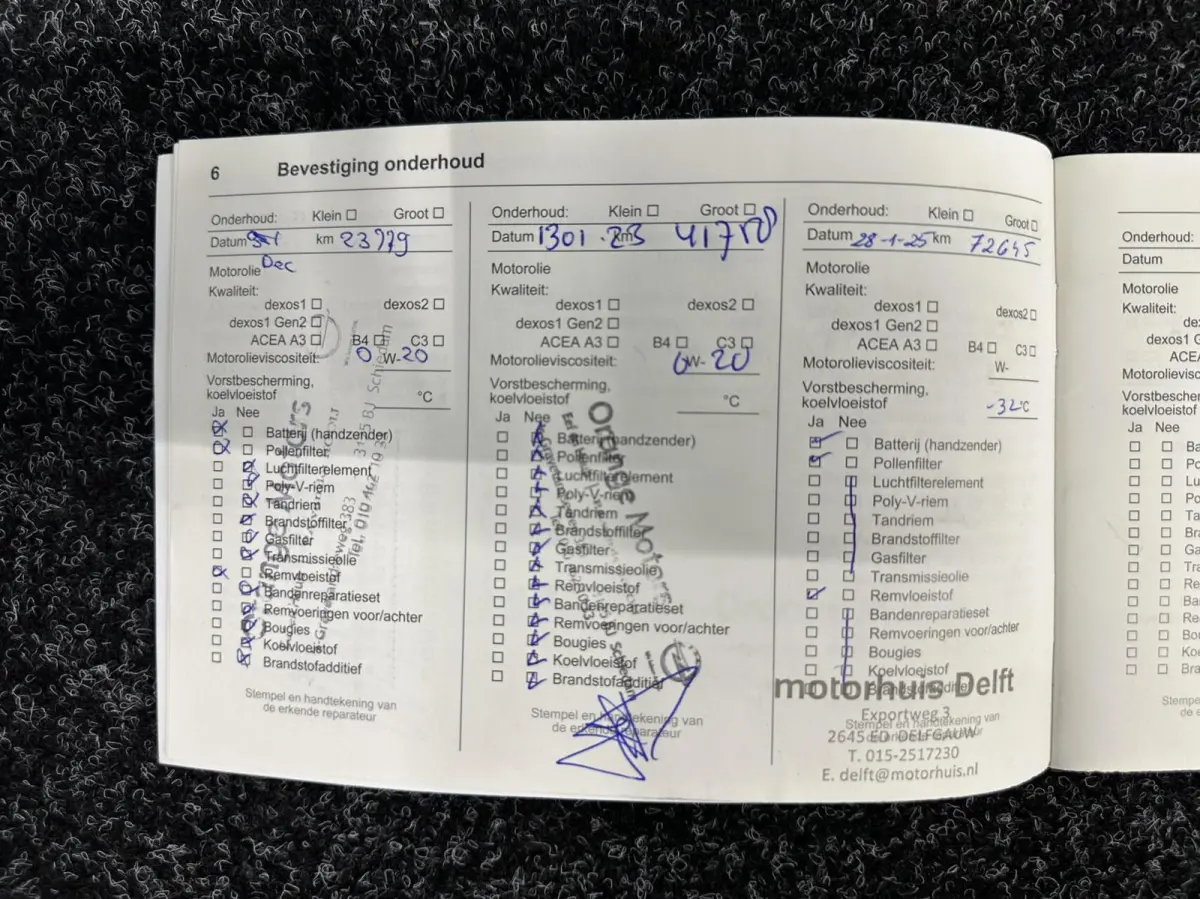 6 Bevestiging onderhoud
Onderhoud: Klein Groot
Datum km 23779
Dec
Motorolie
Kwaliteit:
dexos1 dexos2
dexos1 Gen2
ACEA A3 B4 C3
Motorolieviscositeit: 0 W- 20
Vorstbescherming,
koelvloeistof °C
Ja Nee
Batterij (handzender)
Pollenfilter
Luchtfilterelement
Poly-V-riem
Tandriem
Brandstoffilter
Gasfilter
Transmissieolie
Remvloeistof
Bandenreparatieset
Remvoeringen voor/achter
Bougies
Koelvloeistof
Brandstofadditief
Stempel en handtekening van
de erkende reparateur
Schiedam
Onderhoud: Klein Groot
Datum 1301 .23 km
Motorolie
Kwaliteit:
dexos1 dexos2
dexos1 Gen2
ACEA A3 B4 C3
Motorolieviscositeit: 0 W- 20
Vorstbescherming,
koelvloeistof °C
Ja Nee
Batterij (handzender)
Pollenfilter
Luchtfilterelement
Poly-V-riem
Tandriem
Brandstoffilter
Gasfilter
Transmissieolie
Remvloeistof
Bandenreparatieset
Remvoeringen voor/achter
Bougies
Koelvloeistof
Brandstofadditief
Stempel en handtekening van
de erkende reparateur
Orange Motors
Schiedam
Onderhoud: Klein Groot
Datum 28-1-25 km 72645
Motorolie
Kwaliteit:
dexos1 dexos2
dexos1 Gen2
ACEA A3 B4 C3
Motorolieviscositeit: W-
Vorstbescherming,
koelvloeistof -32°C
Ja Nee
Batterij (handzender)
Pollenfilter
Luchtfilterelement
Poly-V-riem
Tandriem
Brandstoffilter
Gasfilter
Transmissieolie
Remvloeistof
Bandenreparatieset
Remvoeringen voor/achter
Bougies
Koelvloeistof
Brandstofadditief
motorhuis Delft
Exportweg 3
Stempel en handtekening van
2645 ED DELFGAUW
T. 015-2517230
E. delft@motorhuis.nl
Onderhoud:
Datum
Motorolie
Kwaliteit:
Vorstbescherming,
koelvloeistof
Ja Nee